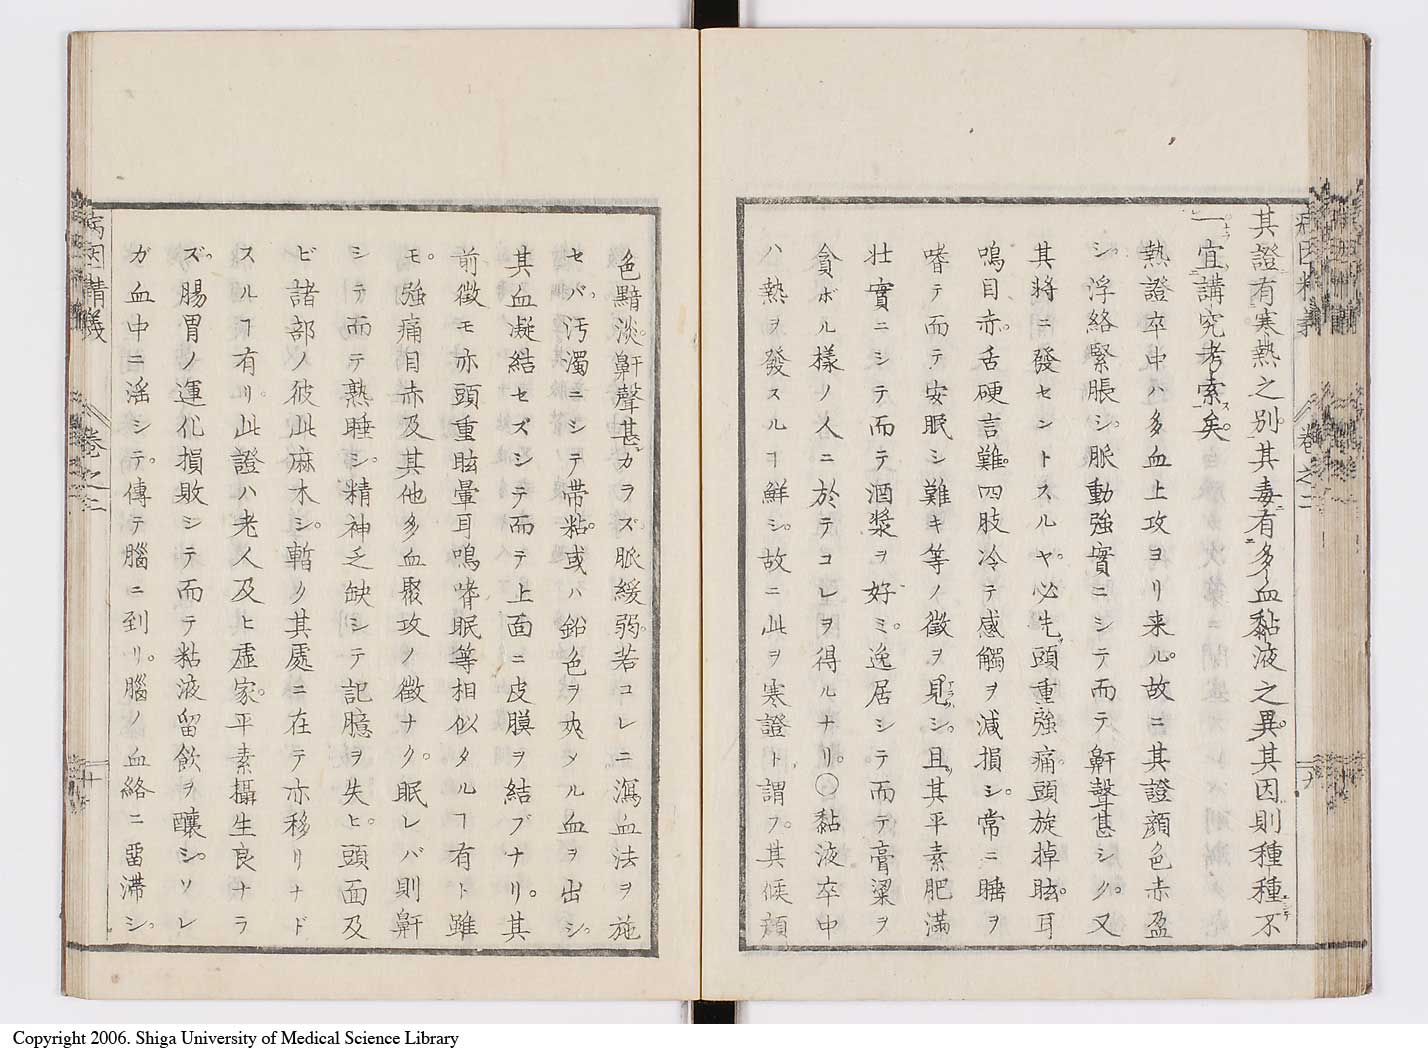 其證有寒熱之別。其毒有多血黏液之異。其因則種種不
一。宜講究考索矣。
熱證卒中ハ多血上攻ヨリ来ル。故ニ其證顔色赤盈
シ。浮絡緊脹シ。脈動強實ニシテ而テ鼾聲甚シク。又
其將ニ發セントスルヤ。必先頭重強痛。頭旋掉眩。耳
鳴目赤。舌硬言難。四肢冷テ感觸ヲ減損シ。常ニ睡ヲ
嗜テ而テ安眠シ難キ等ノ徴ヲ見シ。且其平素肥満
壮實ニシテ而テ酒漿ヲ好ミ。逸居シテ而テ膏粱ヲ
貪ボル様ノ人ニ於テコレヲ得ルナリ。〇黏液卒中
ハ熱ヲ發スルヿ鮮シ。故ニ此ヲ寒證ト謂フ。其候顔
病因精義 巻之二 九
色黯淡。鼾聲甚カラズ脈緩弱。若コレニ瀉血法ヲ施
セバ汚濁ニシテ帯粘。或ハ鉛色ヲ夾タル血ヲ出シ。
其血凝結セズシテ而テ上面ニ皮膜ヲ結ブナリ。其
前徴モ亦頭重眩暈耳鳴嗜眠等相似タルヿ有ト雖
モ。強痛目赤及其他多血聚攻ノ徴ナク。眠レバ則鼾
シテ而テ熟睡シ。精神乏缺シテ記臆ヲ失ヒ。頭面及
ビ諸部ノ彼此麻木シ。暫ク其處ニ在テ亦移リナド
スルヿ有リ。此證ハ老人及ヒ虚家。平素攝生良ナラ
ズ。腸胃ノ運化損敗シテ而テ粘液留飲ヲ釀シ。ソレ
ガ血中ニ滛シテ。傳テ腦ニ到リ。腦ノ血絡ニ畱滞シ。
病因精義 巻之二 十
Copyright 2006. Shiga University of Medical Science Library